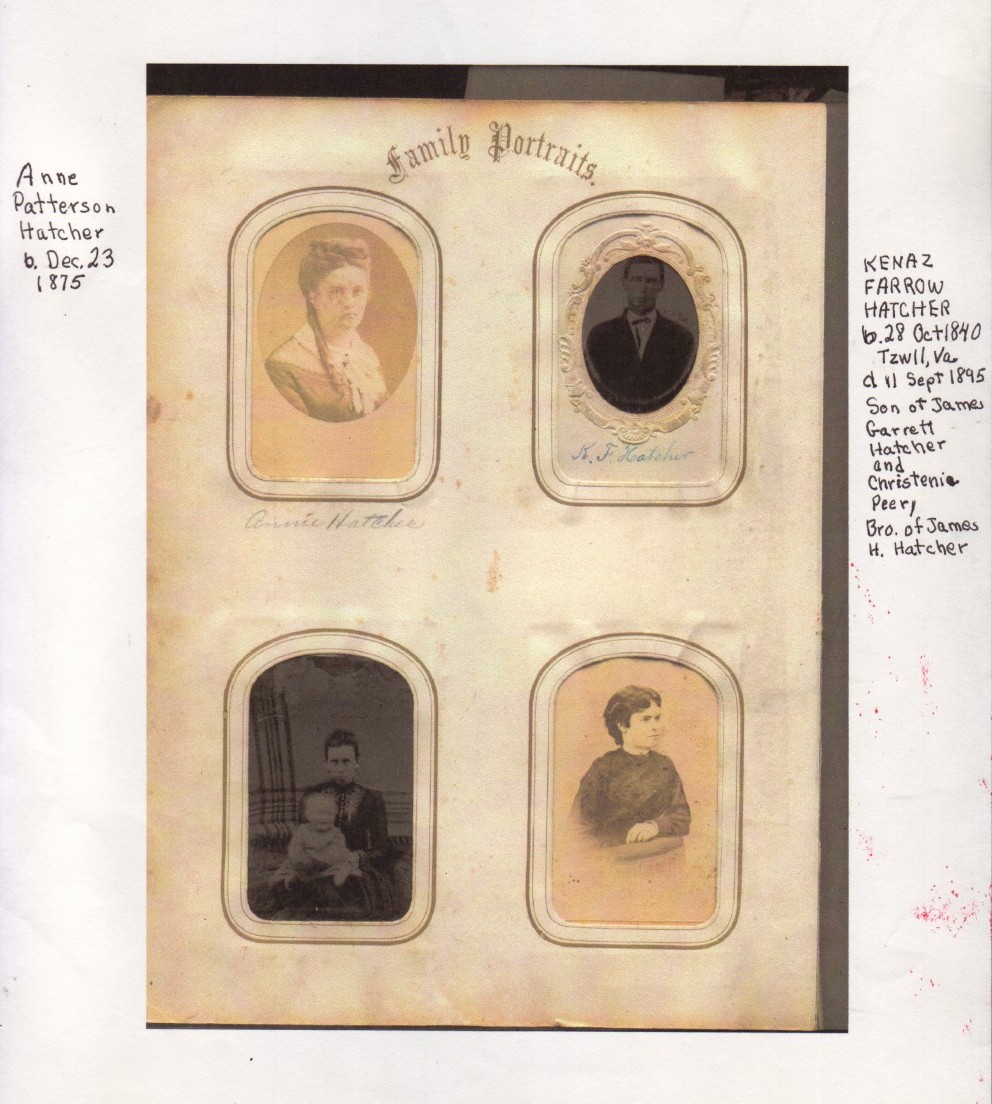 Family Portraits.
Anne
Patterson
Hatcher
b. Dec. 23
1875
K. F. Hatcher
Annie Hatcher
KENAZ
FARROW
HATCHER
b. 28 Oct 1840
Tzwll, Va
d 11 Sept 1895
Son of James
Garrett
Hatcher
and
Christenia
Peery
Bro. of James
H. Hatcher